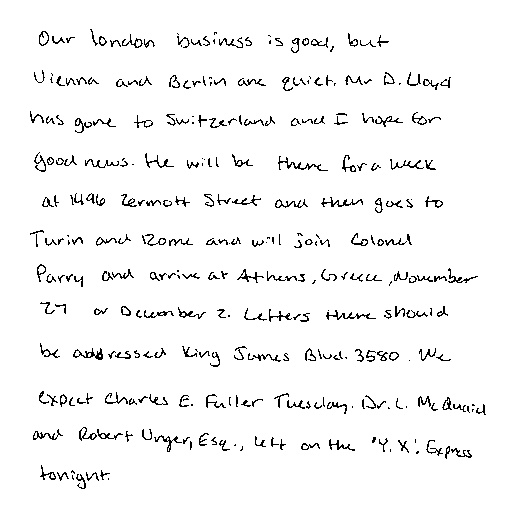 Our london business is good, but
Vienna and Berlin are quiet. Mr D. Lloyd
has gone to Switzerland and I hope for
good news. He will be there for a week
at 1496 Zermott Street and then goes to
Turin and Rome and will join Colonel
Parry and arrive at Athens, Greece, November
27 or December 2. Letters there should
be addressed King James Blvd. 3580. We
expect Charles E. Fuller Tuesday. Dr. L. McQuaid
and Robert Unger, Esq., left on the 'Y.X'. Express
tonight.